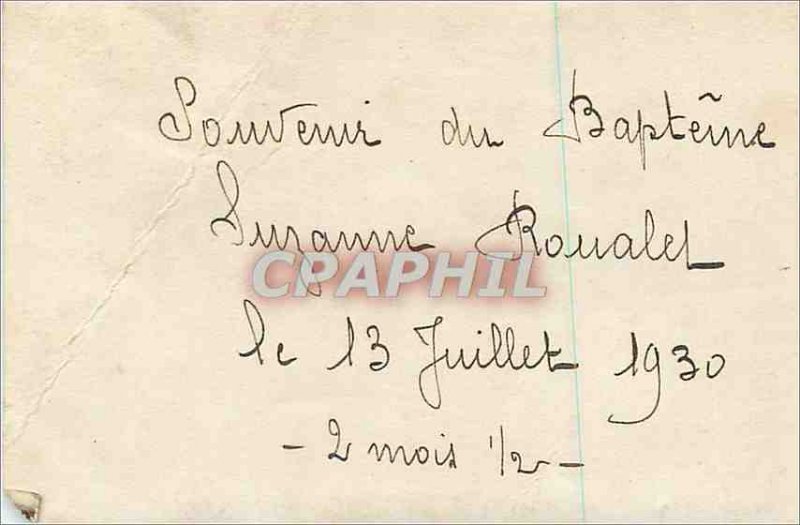 Souvenir du Baptême
Suzanne Roualet
CPAPHIL
le 13 Juillet 1930
- 2 mois 1/2 -